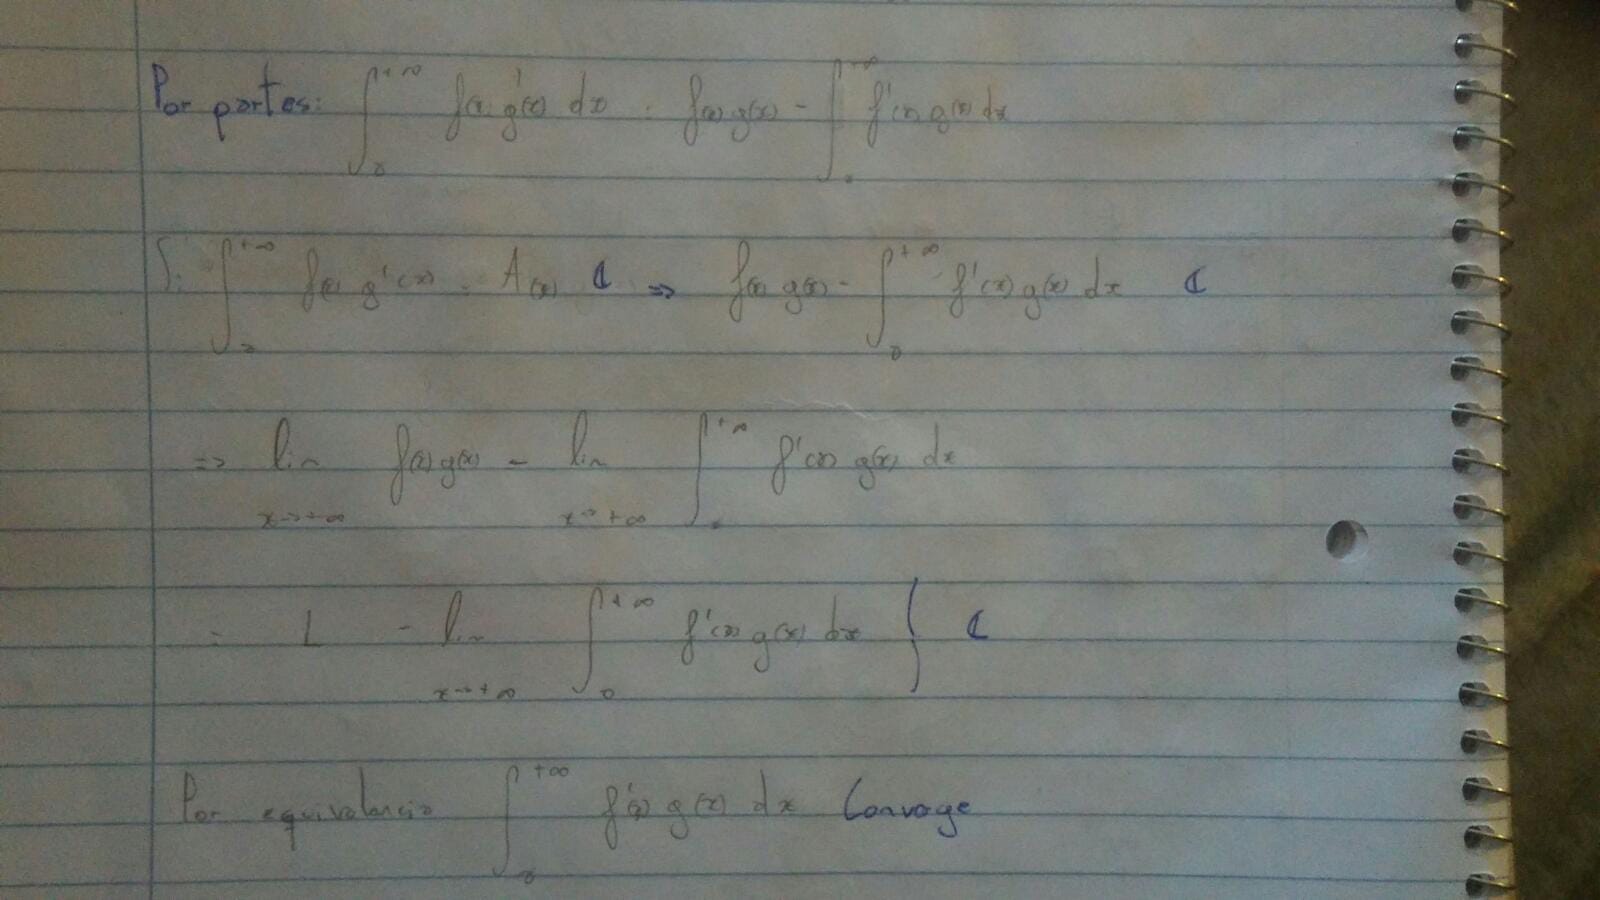 Por partes: ∫₀^{+∞} f(x) g'(x) dx = f(x) g(x) - ∫₀^{+∞} f'(x) g(x) dx
Si ∫₀^{+∞} f(x) g'(x) = A(x) C ⇒ f(x) g(x) - ∫₀^{+∞} f'(x) g(x) dx C
⇒ lim x→+∞ f(x) g(x) - lim x→+∞ ∫₀^{+∞} f'(x) g(x) dx
= L - lim x→+∞ ∫₀^{+∞} f'(x) g(x) dx } C
Por equivalencia ∫₀^{+∞} f'(x) g(x) dx Converge